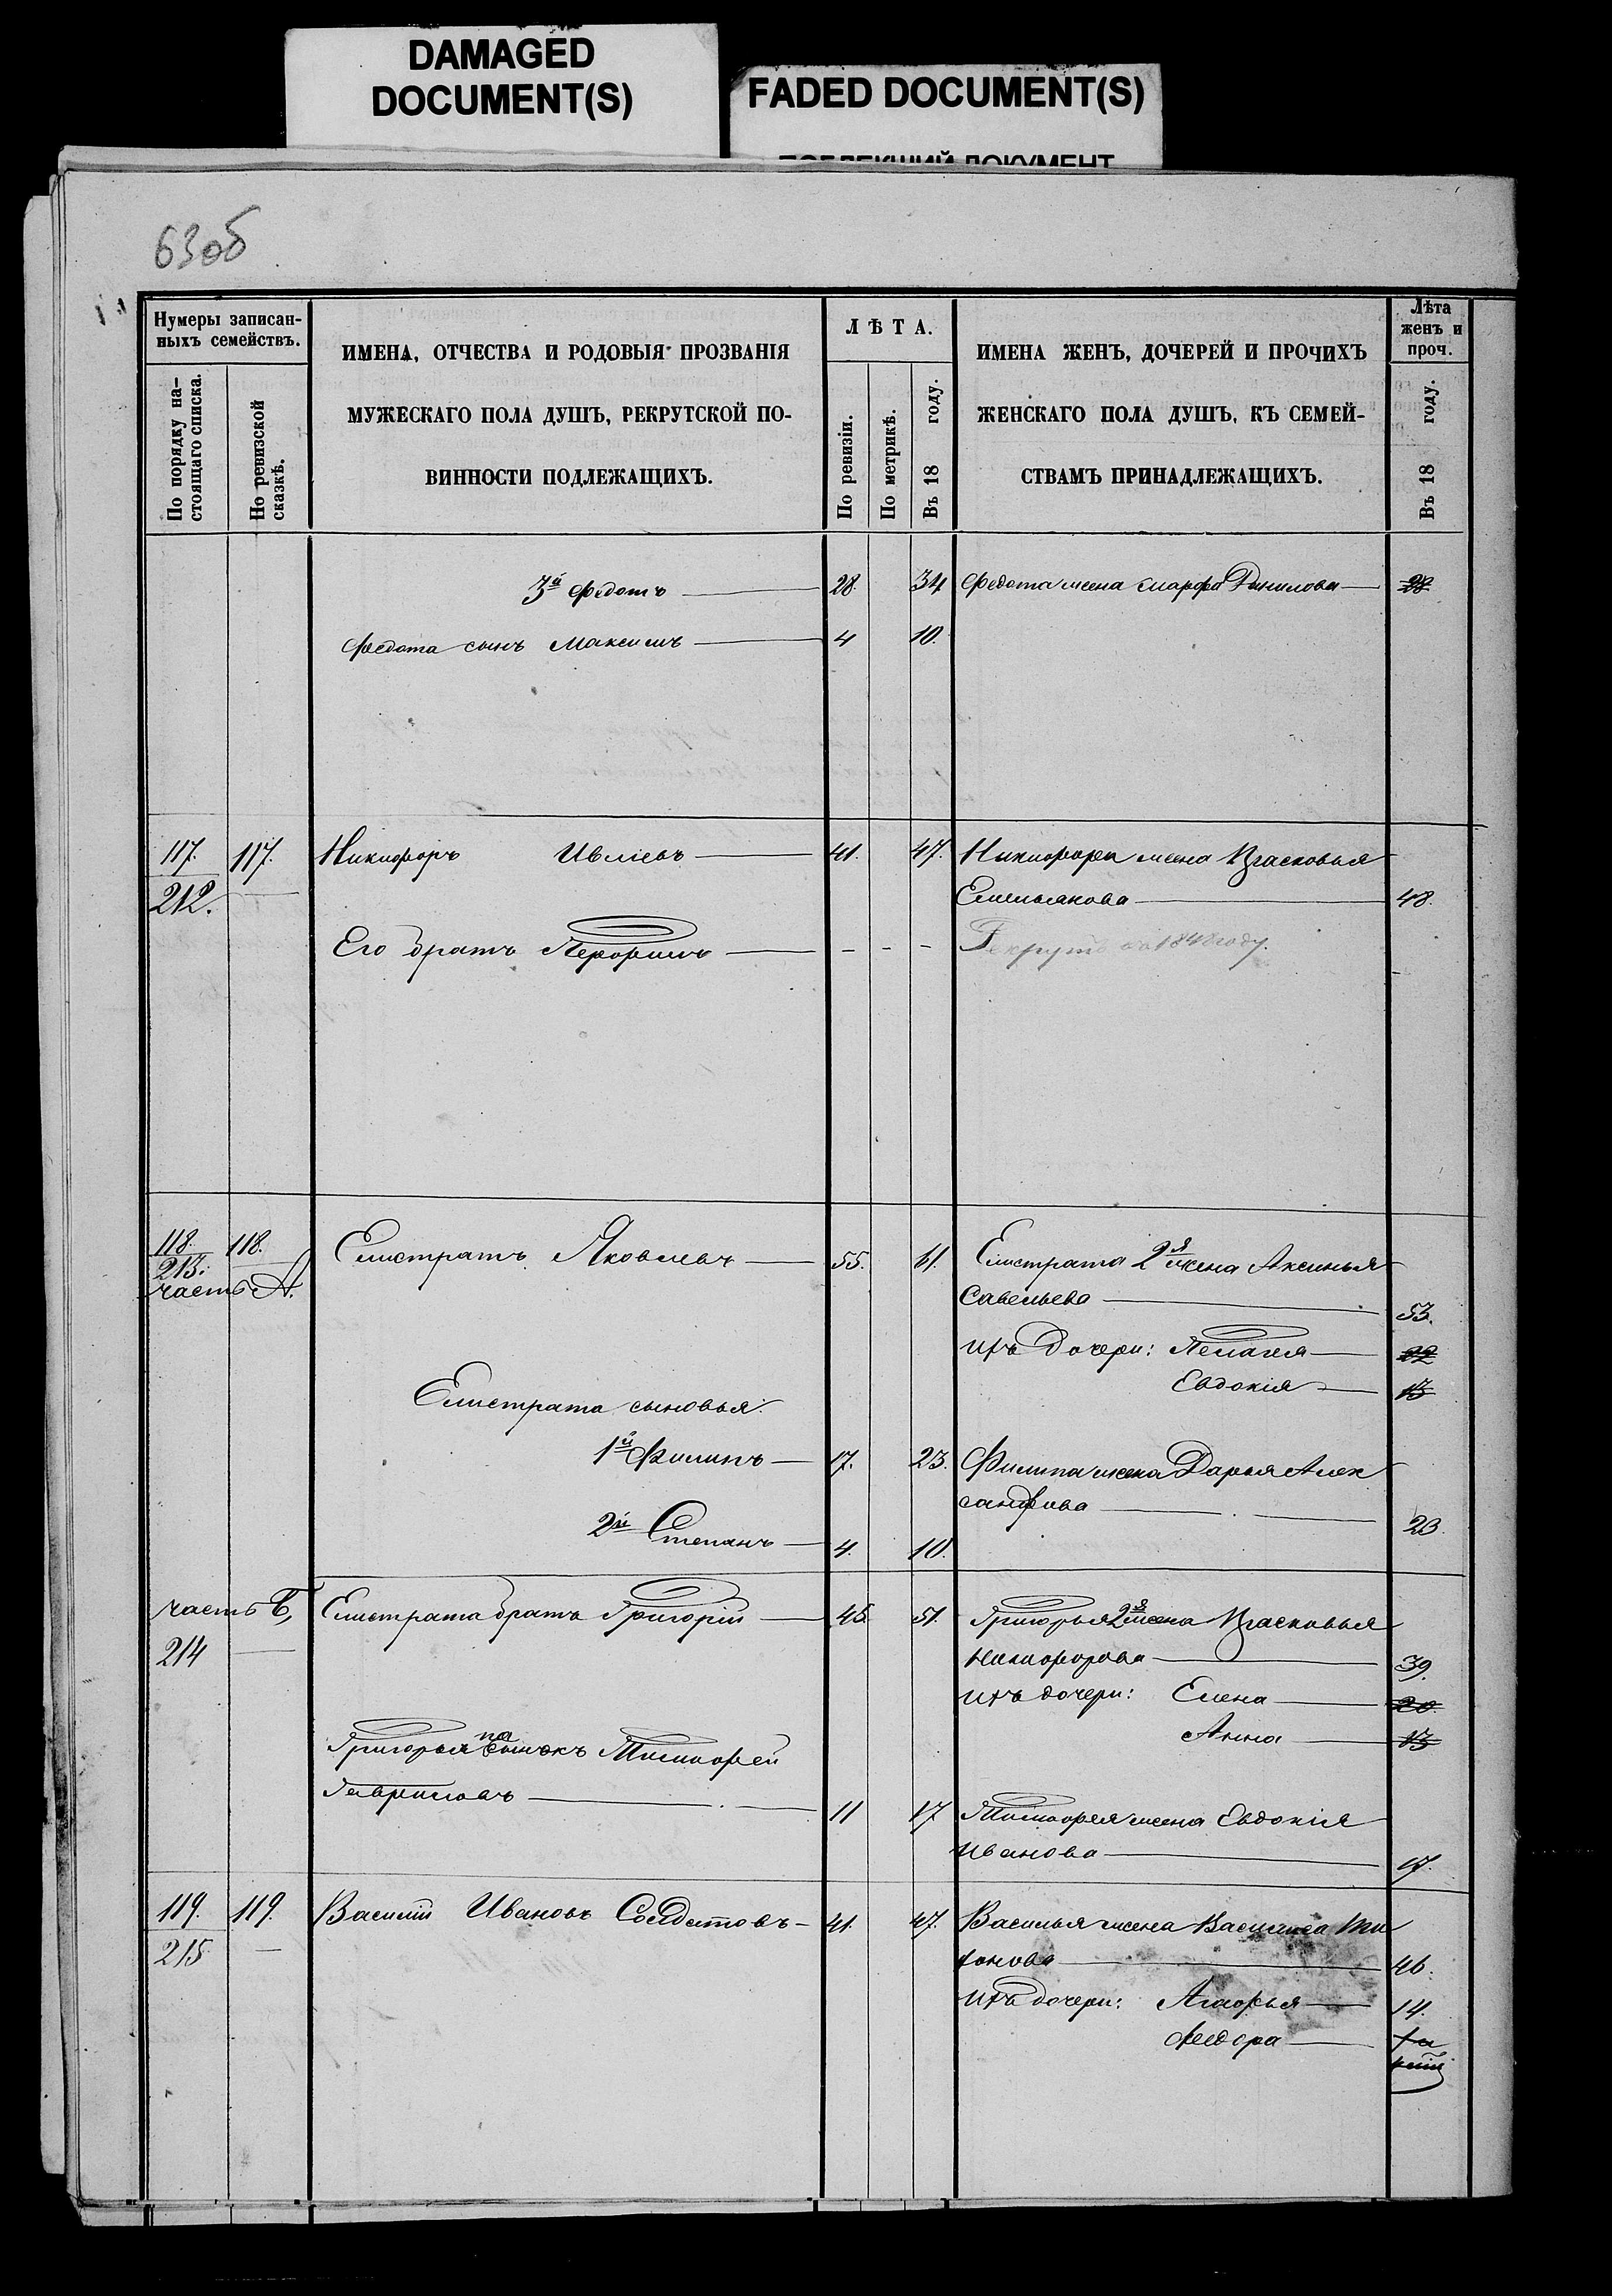 DAMAGED
DOCUMENT(S)
FADED DOCUMENT(S)
63об
Нумеры записан-
ныхъ семействъ.
По порядку на-
стоящаго списка.
По ревизской
сказкѣ.
ИМЕНА, ОТЧЕСТВА И РОДОВЫЯ ПРОЗВАНІЯ
МУЖЕСКАГО ПОЛА ДУШЪ, РЕКРУТСКОЙ ПО-
ВИННОСТИ ПОДЛЕЖАЩИХЪ.
ЛѢТА.
По ревизіи.
По метрикѣ.
Въ 18 году.
ИМЕНА ЖЕНЪ, ДОЧЕРЕЙ И ПРОЧИХЪ
ЖЕНСКАГО ПОЛА ДУШЪ, КЪ СЕМЕЙ-
СТВАМЪ ПРИНАДЛЕЖАЩИХЪ.
Лѣта
женъ и
проч.
Въ 18 году.
3й Федотъ 28. 34 Федота жена Марфа Данилова 28
Федота сынъ Максимъ 4 10.
117. 117. Никифоръ Ивліевъ 41. 47. Никифора жена Прасковья
212. Емельянова 48.
Его братъ Перфилъ - - - Рекрутъ въ 1848 году.
118. 118. Елистратъ Яковлевъ 55. 61. Елистрата 2я жена Аксинья
213.
часть А. Савельева 53.
ихъ дочери: Пелагея 22
Евдокія 13
Елистрата сыновья:
1й Филипъ 17. 23. Филипа жена Дарья Алек
сандрова 23.
2й Степанъ 4. 10.
часть Б, Елистрата братъ Григорій 45. 51. Григорья 2я жена Прасковья
214 Никифорова 39.
ихъ дочери: Елена 20.
Анна 13
Григорья пасынокъ Тимофей
Гавриловъ 11 17 Тимофея жена Евдокія
Иванова 17.
119. 119. Василій Ивановъ Солдатовъ 41. 47. Василья жена Василиса Ти
215 хонова 46.
ихъ дочери: Агафья 14.
Федора